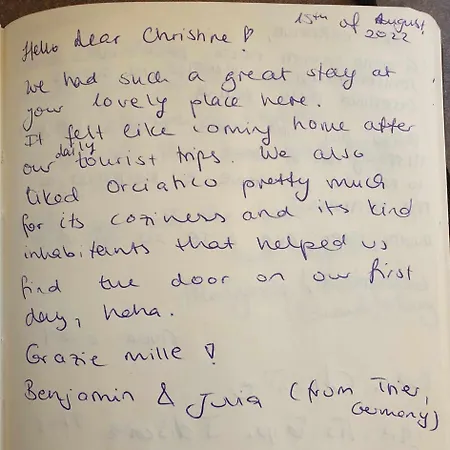 15th of August,
2022
Hello dear Christine!
We had such a great stay at
your lovely place here.
It felt like coming home after
our daily tourist trips. We also
liked Orciatico pretty much
for its coziness and its kind
inhabitants that helped us
find the door on our first
day, haha.
Grazie mille!
Benjamin & Julia (from Trier,
Germany)